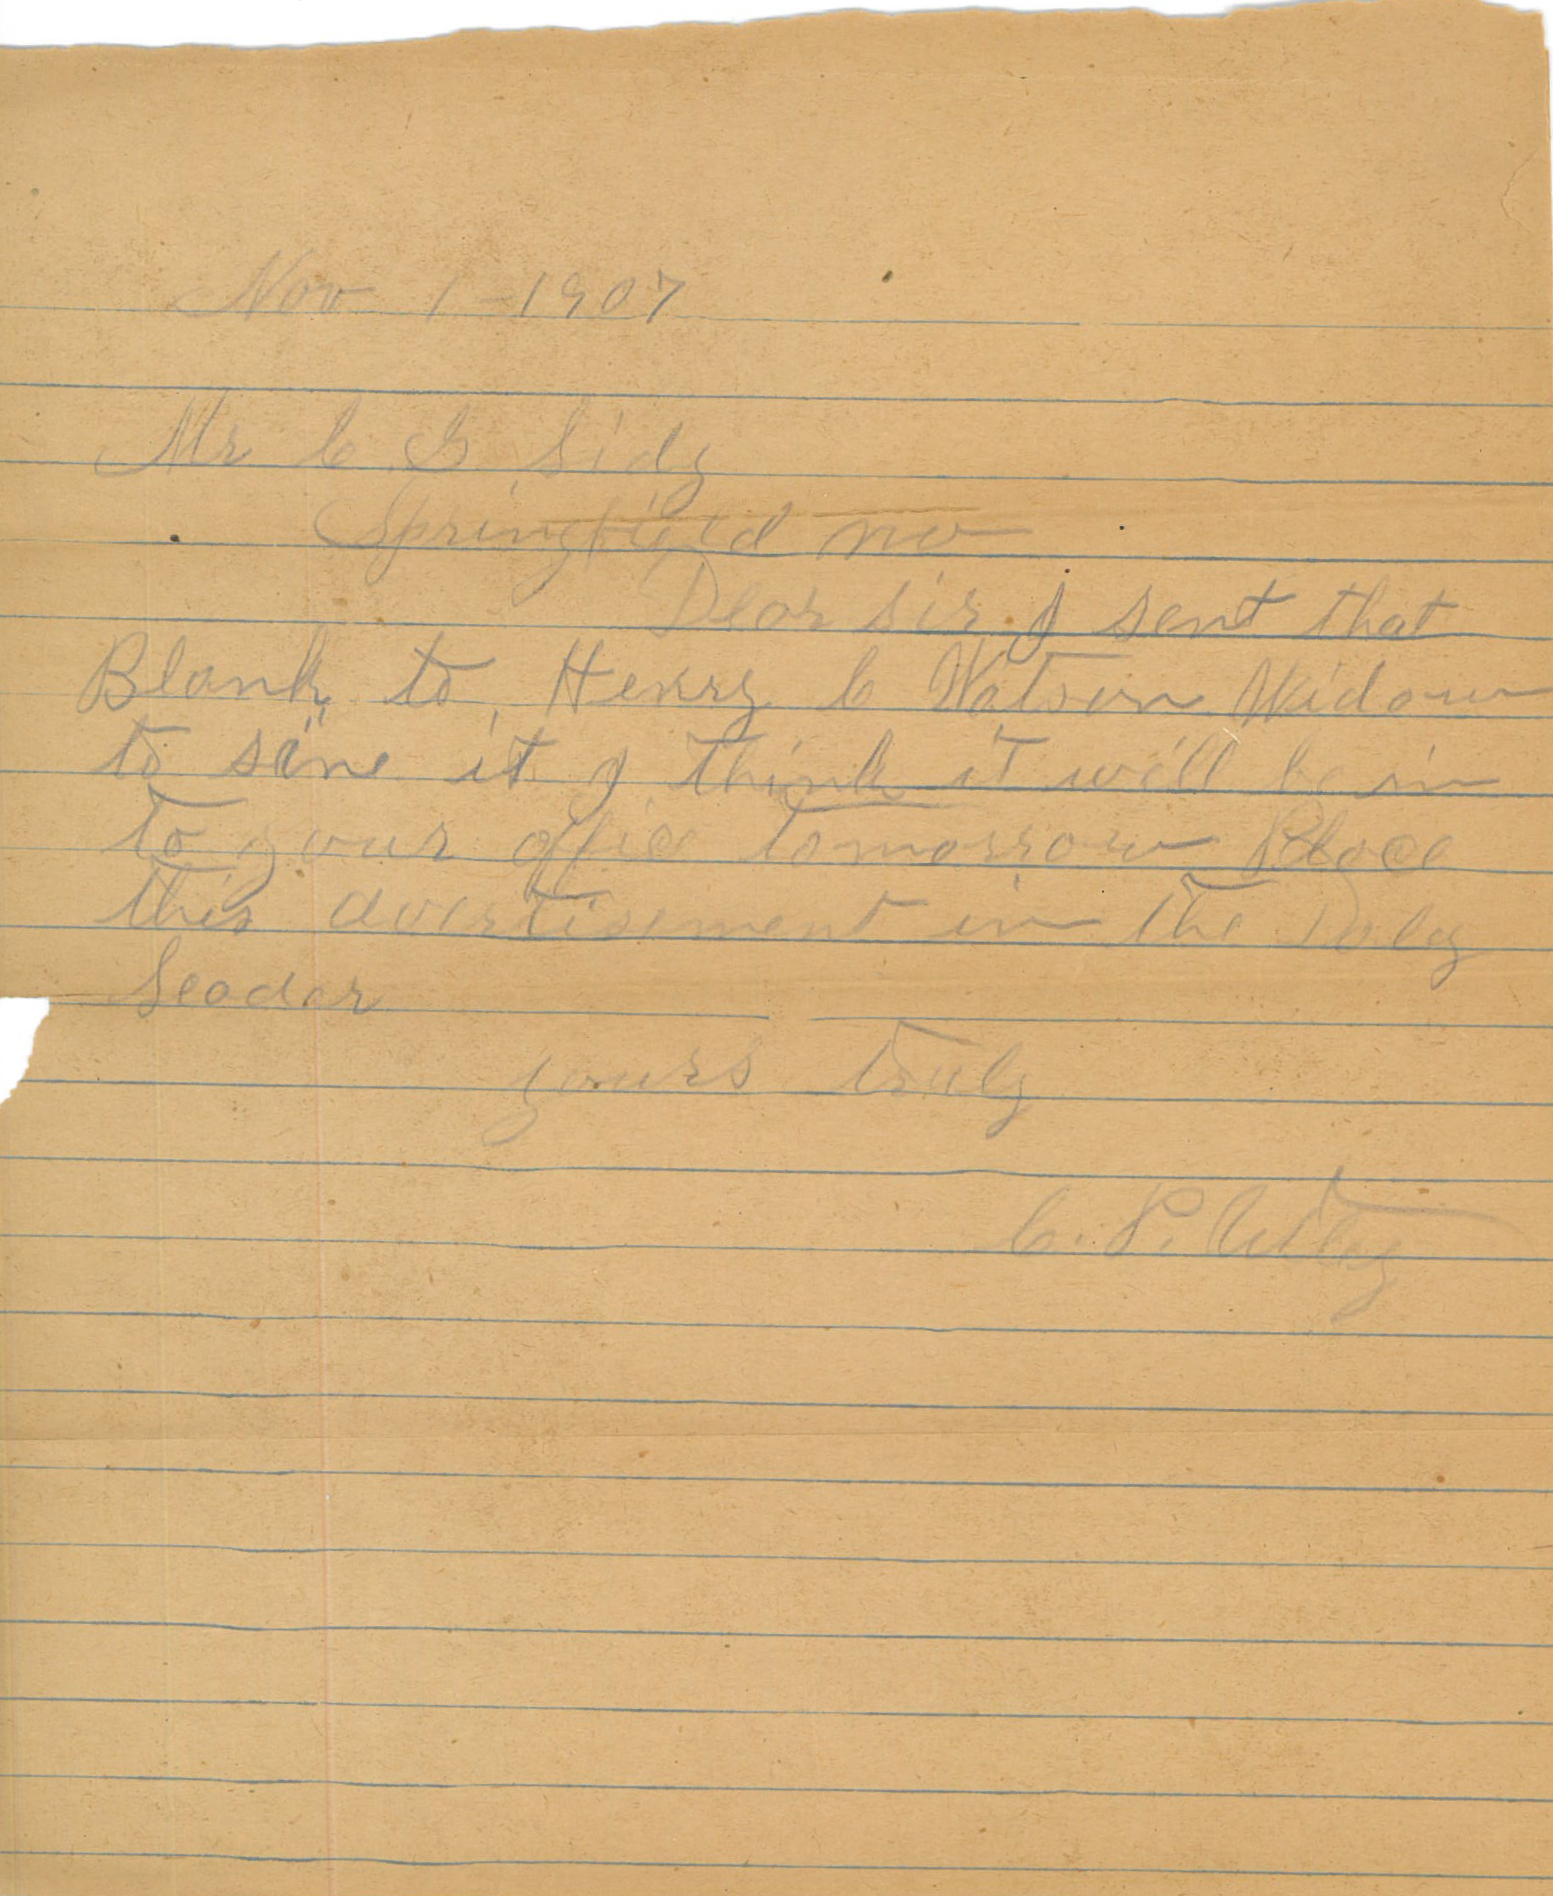 Nov 1-1907
Mr C. G. Sidy
Springfield mo
Dear sir I sent that
Blank to Henry C Watson Widow
to sine it I think it will be in
to your offic tomorrow Place
this advertisement in the Daley
Leadar
yours truly
C. P. Utley